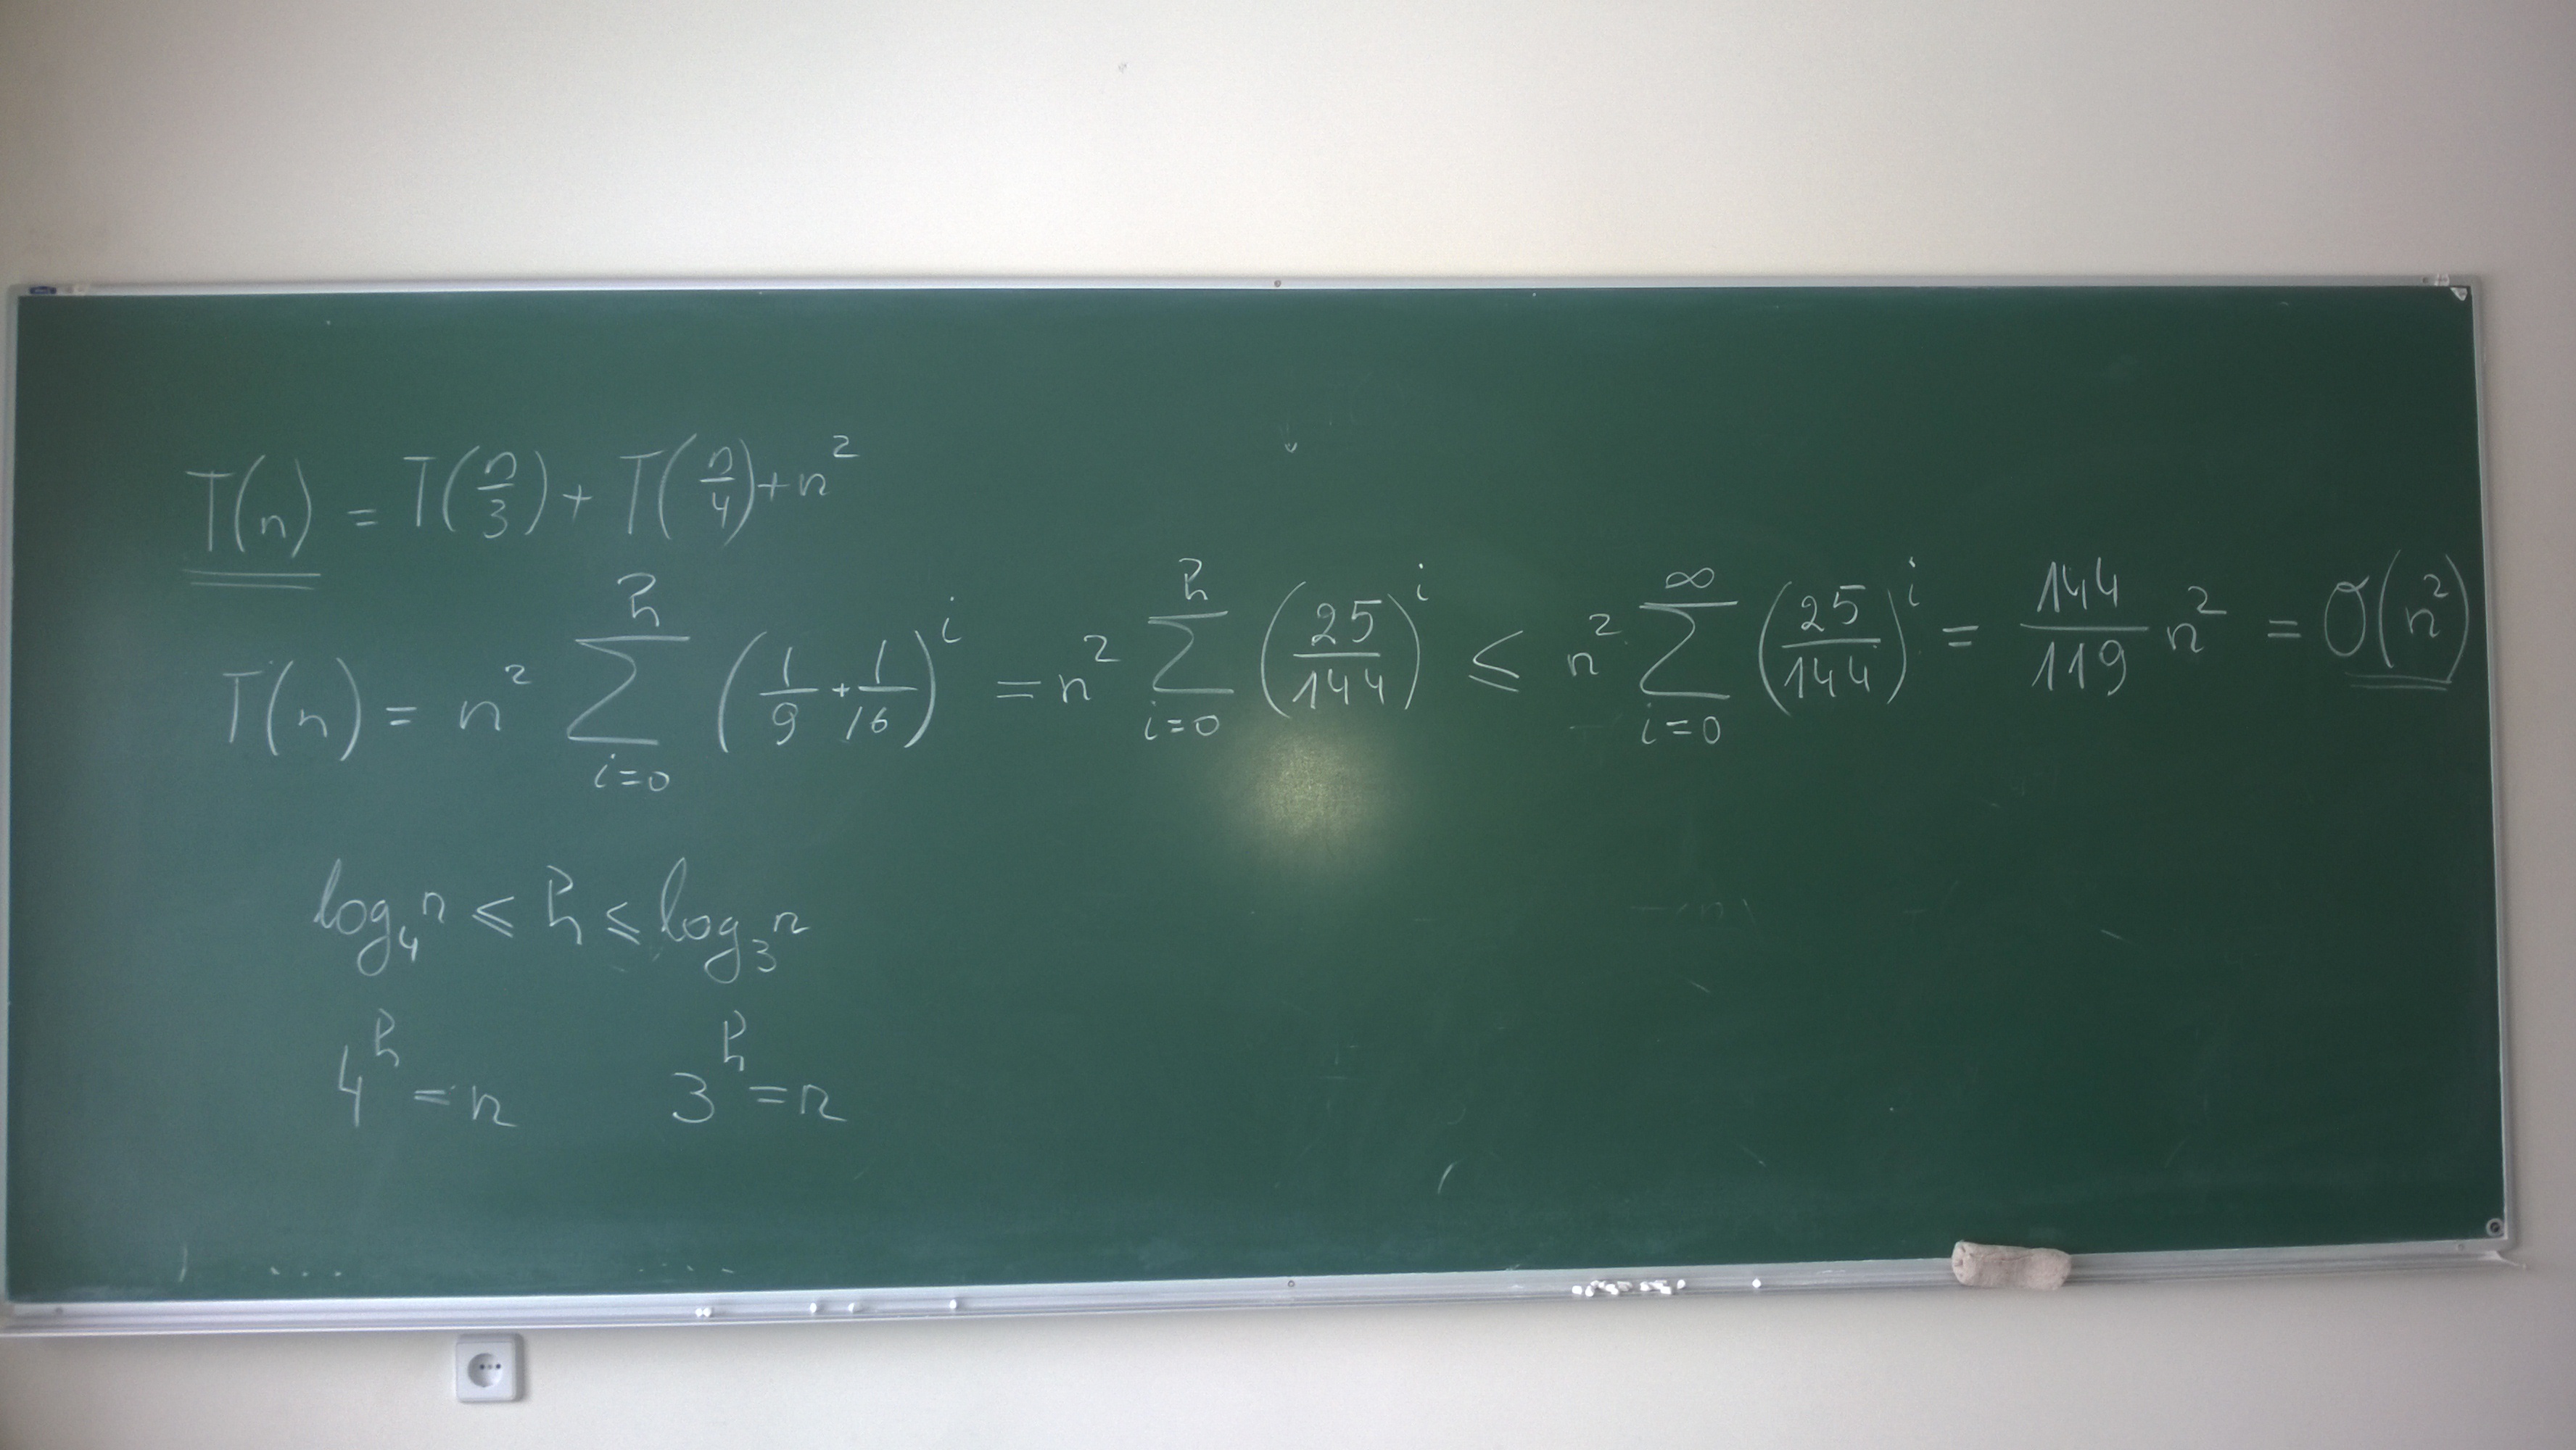 T(n) = T(n/3) + T(n/4) + n²
T(n) = n² ∑_{i=0}^{h} (1/9 + 1/16)^i = n² ∑_{i=0}^{h} (25/144)^i ≤ n² ∑_{i=0}^{∞} (25/144)^i = 144/119 n² = O(n²)
log₄n ≤ h ≤ log₃n
4^h = n 3^h = n